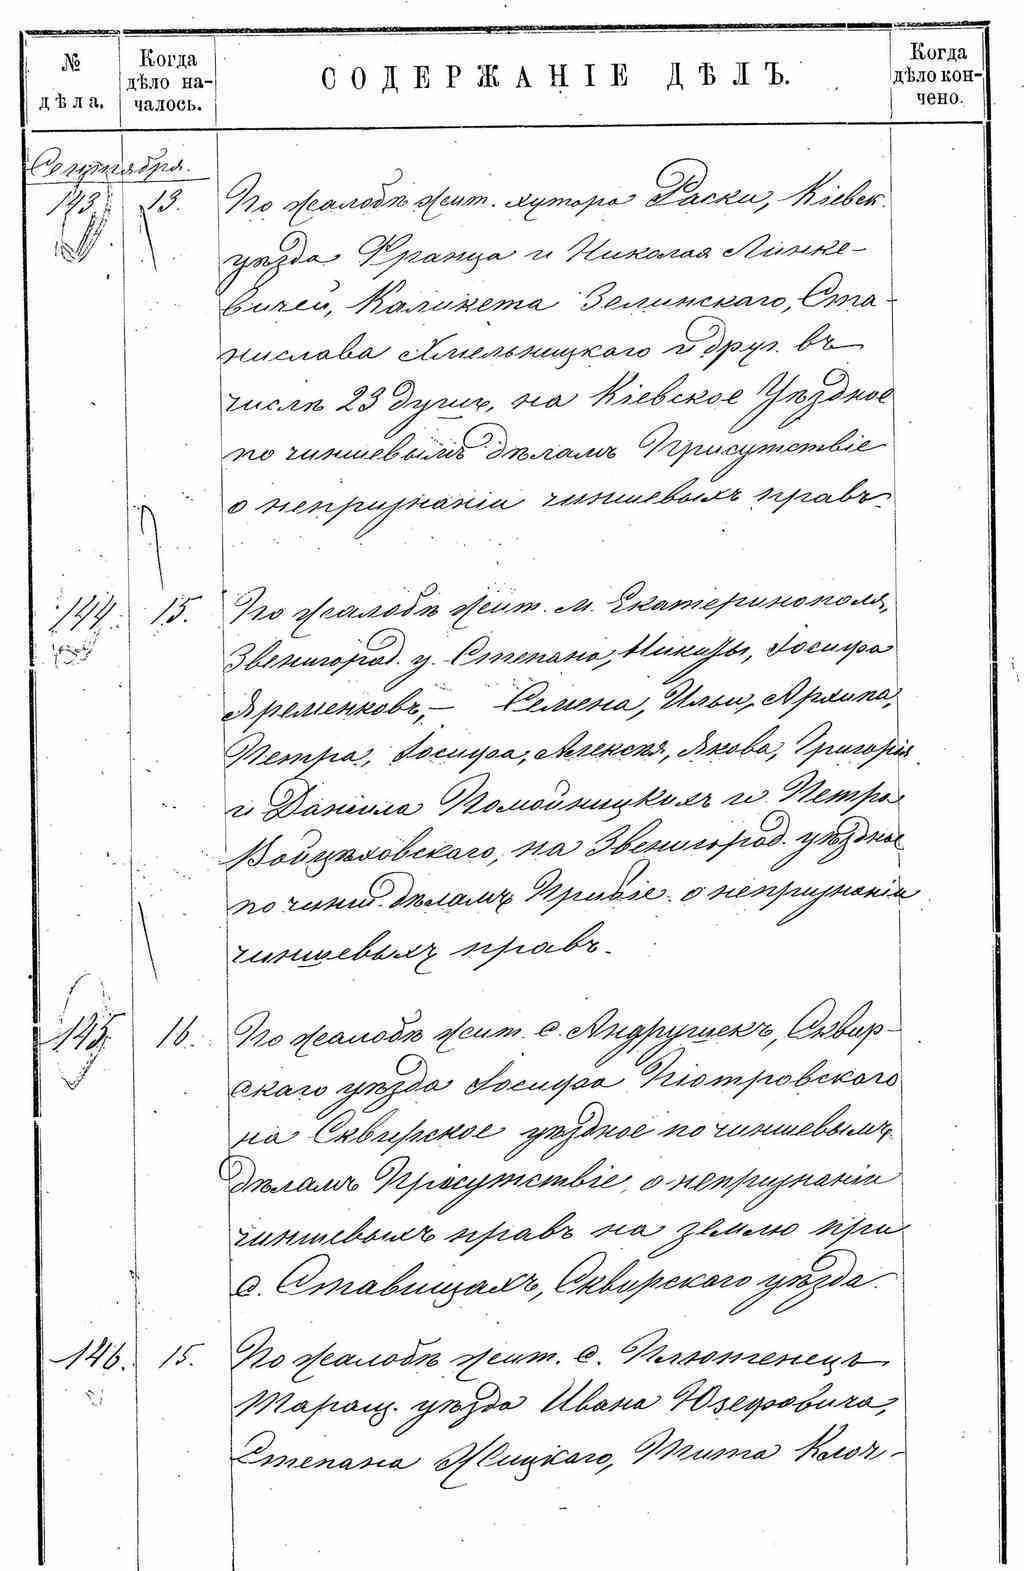 № дѣла.
Когда дѣло на-
чалось.
СОДЕРЖАНІЕ ДѢЛЪ.
Когда дѣло кон-
чено.
Сентября.
143 13. По жалобѣ жит. хутора Раски, Кіевск.
уѣзда Франца и Николая Линке-
вичей, Каликста Зелинскаго, Ста-
нислава Хмельницкаго и друг. въ
числѣ 23 душъ, на Кіевское Уѣздное
по чиншевымъ дѣламъ Присутствіе
о непризнаніи чиншевыхъ правъ.
144. 15. По жалобѣ жит. м. Екатеринополя,
Звенигород. у. Степана, Никиты, Іосифа
Яременковъ, – Семена, Ильи, Архипа,
Петра, Іосифа, Алексѣя, Якова, Григорія
и Даніила Помойницкихъ и Петра
Войцѣховскаго, на Звенигород. уѣздное
по чинш. дѣламъ Прибіе. о непризнаніи
чиншевыхъ правъ.
145. 16. По жалобѣ жит. с. Андрушекъ, Сквир-
скаго уѣзда Іосифа Піотровскаго
на Сквирское уѣздное по чиншевымъ
дѣламъ Присутствіе, о непризнаніи
чиншевыхъ правъ на землю при
с. Ставищахъ, Сквирскаго уѣзда.
146. 15. По жалобѣ жит. с.
Таращ. уѣзда Ивана Юзефовича,
Степана Жицкаго, Тита Клоч-